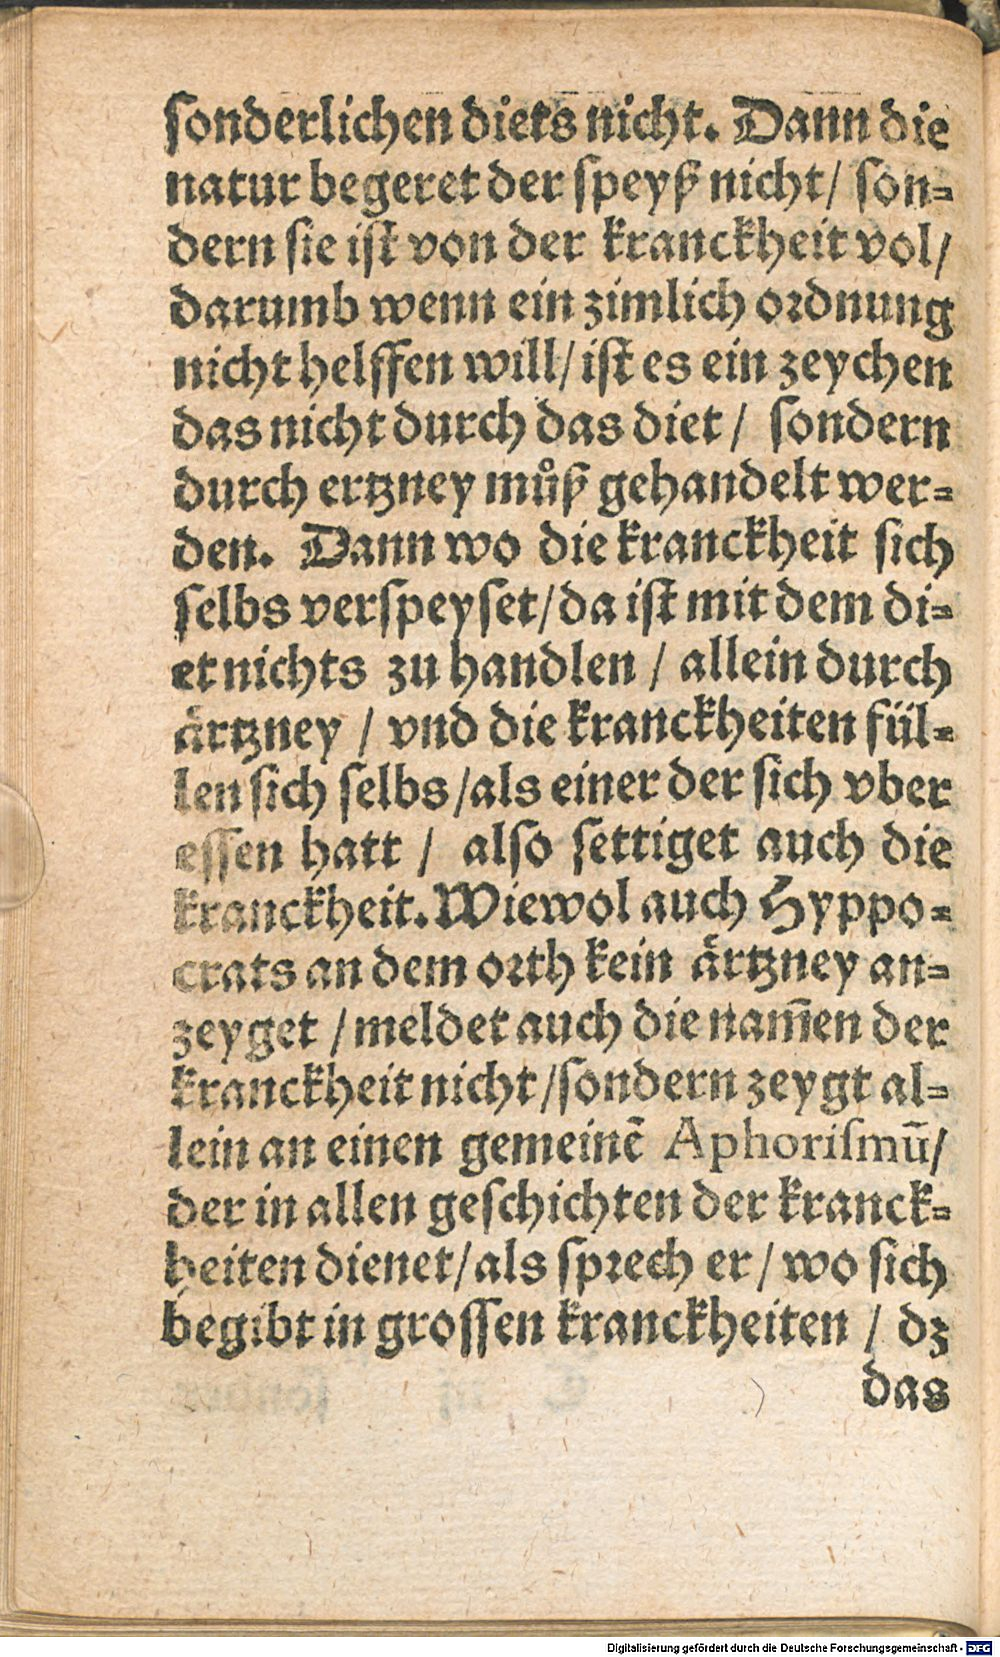 sonderlichen diets nicht. Dann die
natur begeret der speyß nicht/ son-
dern sie ist von der kranckheit vol/
darumb wenn ein zimlich ordnung
nicht helffen will/ ist es ein zeychen
das nicht durch das diet / sondern
durch ertzney můß gehandelt wer-
den. Dann wo die kranckheit sich
selbs verspeyset/da ist mit dem di-
et nichts zu handlen / allein durch
aͤrtzney / vnd die kranckheiten fül-
len sich selbs/als einer der sich vber
essen hatt / also settiget auch die
kranckheit. Wiewol auch Hyppo-
crats an dem orth kein aͤrtzney an-
zeyget /meldet auch die nam̄en der
kranckheit nicht/sondern zeygt al-
lein an einen gemeinē Aphorismū/
der in allen geschichten der kranck-
heiten dienet/als sprech er/ wo sich
begibt in grossen kranckheiten / dz
das
Digitalisierung gefördert durch die Deutsche Forschungsgemeinschaft - DFG